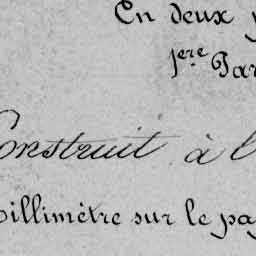 En deux
1ère Par
Construit à l
illimètre sur le pa